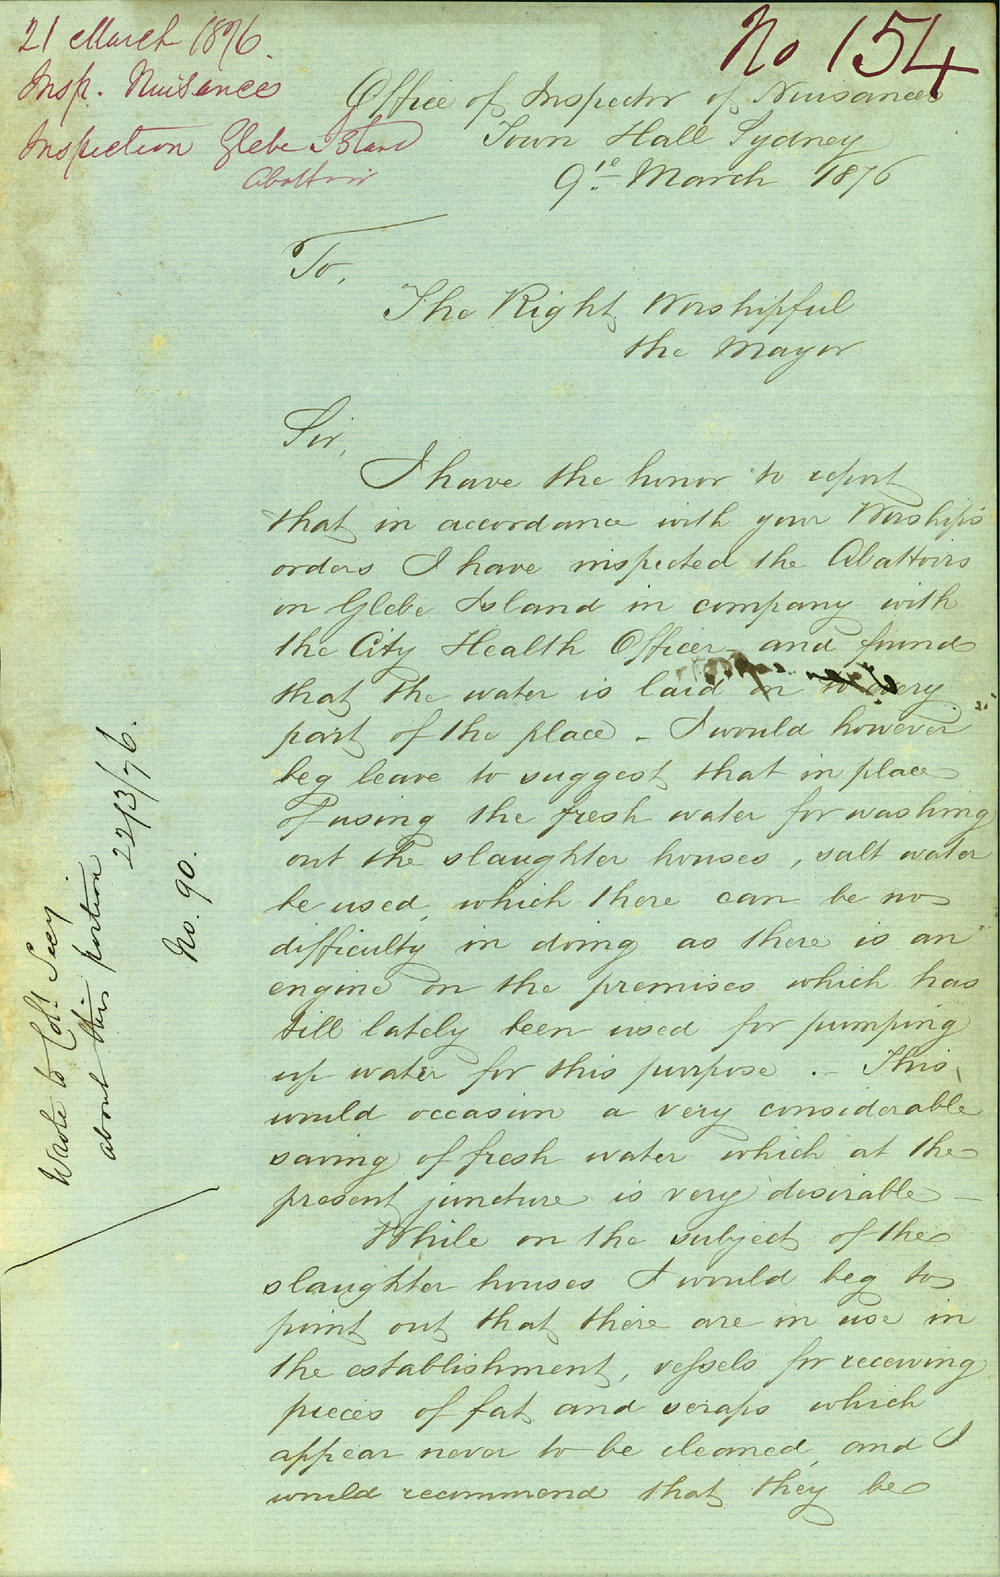 21 March 1876.
Insp. Nuisances
Inspection Glebe Island
Abattoir
No 154
Office of Inspector of Nuisances
Town Hall Sydney
9th March 1876
To,
The Right Worshipful
the Mayor
Sir,
I have the honor to report
that in accordance with your Worship's
orders I have inspected the Abattoirs
on Glebe Island in company with
the City Health Officer and found
that the water is laid on to every
part of the place - I would however
beg leave to suggest that in place
of using the fresh water for washing
out the slaughter houses, salt water
be used, which there can be no
difficulty in doing as there is an
engine on the premises which has
till lately been used for pumping
up water for this purpose. - This
would occasion a very considerable
saving of fresh water which at the
present juncture is very desirable -
While on the subject of the
slaughter houses I would beg to
point out that there are in use in
the establishment, vessels for receiving
pieces of fat and scraps which
appear never to be cleaned, and I
would recommend that they be
Wrote to Col. Secy.
about this portion
22/3/76.
No. 90.